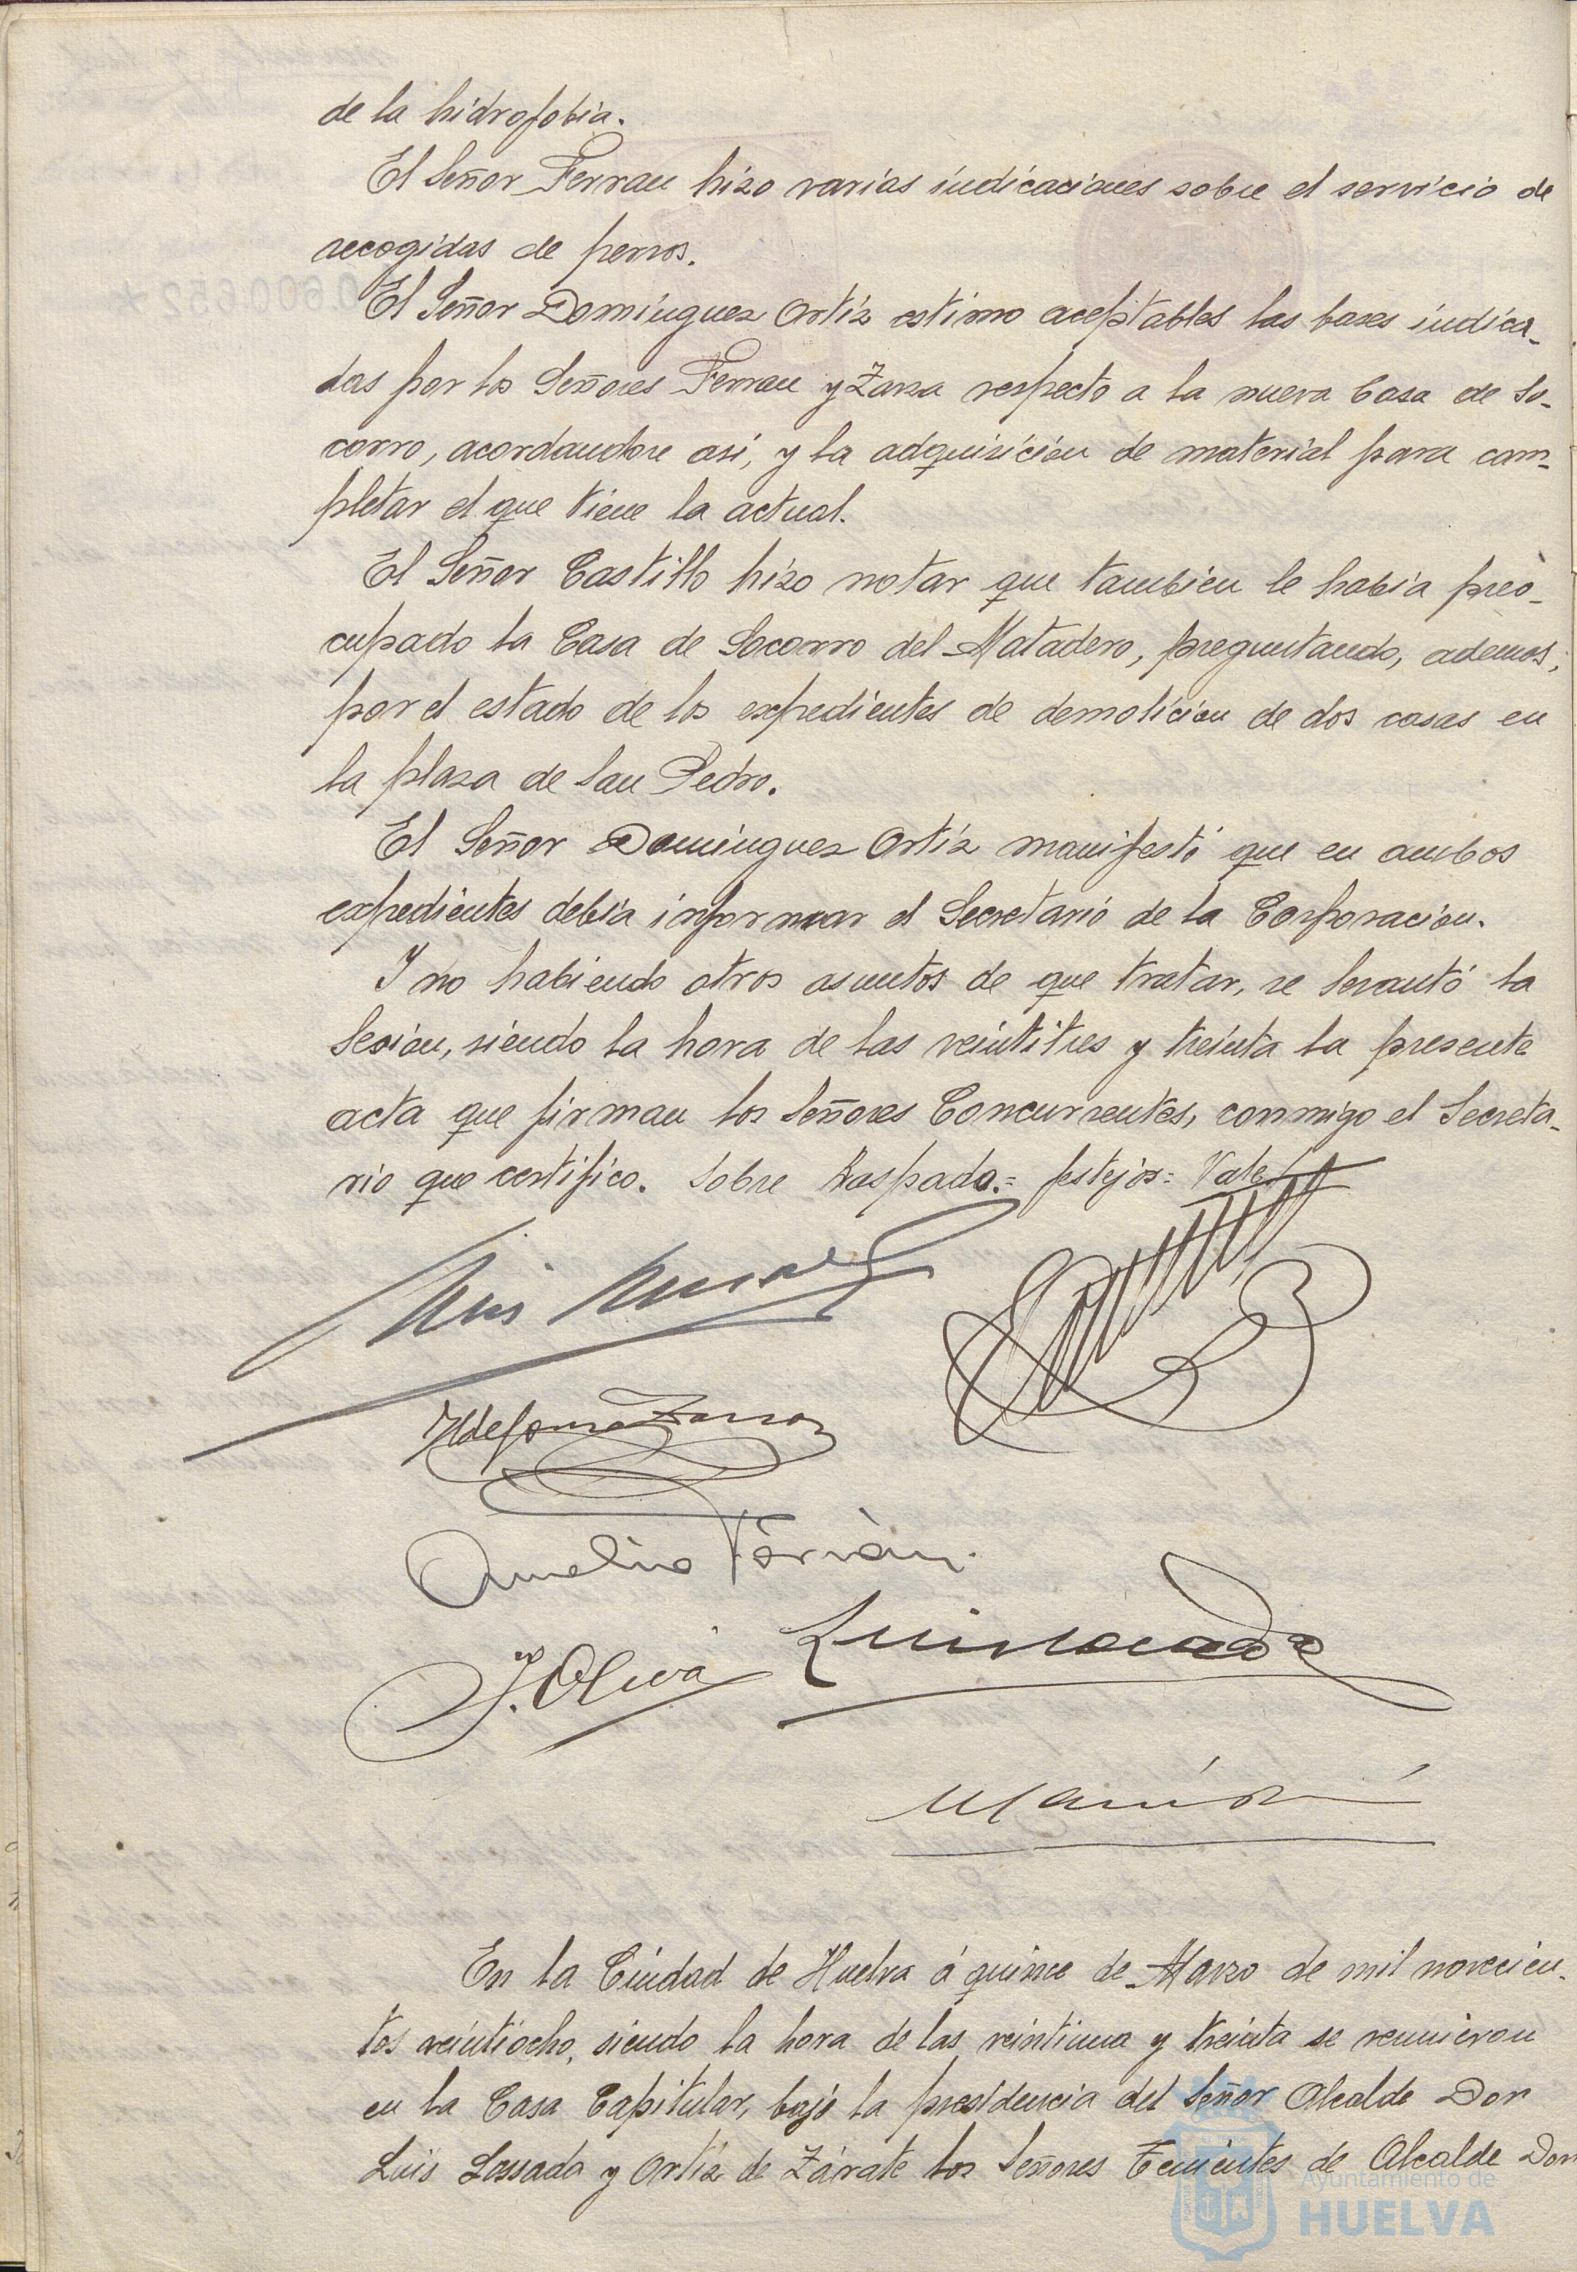 de la hidrofobia.
El Señor Ferrau hizo varias indicaciones sobre el servicio de
recogidas de perros.
El Señor Domínguez Ortíz estimo aceptables las bases indica-
das por los Señores Ferrau y Zarza respecto a la nueva Casa de So-
corro, acordandose así, y la adquisición de material para com-
pletar el que tiene la actual.
El Señor Castillo hizo notar que tambien le había preo-
cupado la Casa de Socorro del Matadero, preguntando, ademas,
por el estado de los expedientes de demolición de dos casas en
la plaza de San Pedro.
El Señor Domínguez Ortíz manifestó que en ambos
expedientes debía informar el Secretario de la Corporación.
Y no habiendo otros asuntos de que tratar, se levantó la
Sesión, siendo la hora de las veintitres y treinta la presente
acta que firman los Señores Concurrentes, conmigo el Secreta-
rio que certifico. Sobre Raspado.= festejos= Vale
Ildefonso Zarza
Aurelio Ferrán.
J. Oliva
En la Ciudad de Huelva á quince de Marzo de mil novecien-
tos veintiocho, siendo la hora de las veintiuna y treinta se reunieron
en la Casa Capitular, bajo la presidencia del Señor Alcalde Don
Luis Lossada y Ortíz de Zárate los Señores Tenientes de Alcalde Don
Ayuntamiento de
HUELVA